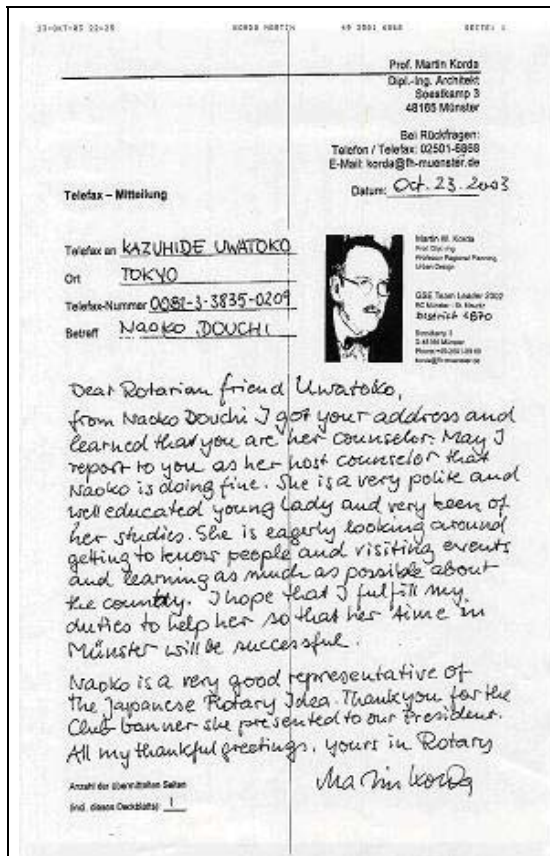 23-OKT-03 22:29 KORDA MARTIN 49 2501 6868 SEITE: 1
Prof. Martin Korda
Dipl.-Ing. Architekt
Soestkamp 3
48165 Münster
Bei Rückfragen:
Telefon / Telefax: 02501-6868
E-Mail: korda@fh-muenster.de
Datum: Oct. 23. 2003
Telefax – Mitteilung
Telefax an KAZUHIDE UWATOKO
Ort TOKYO
Telefax-Nummer 0081-3-3835-0209
Betreff NAOKO DOUCHI
Martin W. Korda
Prof. Dipl.-Ing.
Professor Regional Planning
Urban Design
GSE Team Leader 2002
RC Münster - St. Mauritz
District 1870
Soestkamp 3
D-48165 Münster
korda@fh-muenster.de
Dear Rotarian friend Uwatoko,
from Naoko Douchi I got your address and
learned that you are her counselor. May I
report to you as her host counselor that
Naoko is doing fine. She is a very polite and
well educated young lady and very keen of
her studies. She is eagerly looking around
getting to know people and visiting events
and learning as much as possible about
the country. I hope that I fulfill my
duties to help her so that her time in
Münster will be successful.
Naoko is a very good representative of
the Japanese Rotary Idea. Thank you for the
Club banner she presented to our President.
All my thankful greetings, yours in Rotary
Martin Korda
Anzahl der übermittelten Seiten
(incl. dieses Deckblatts) 1